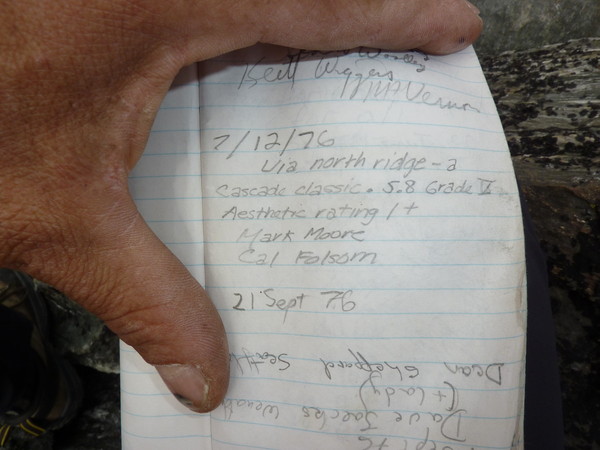 Brett Wiggers
Mt Vernon
7/12/76
via north ridge - a
Cascade classic. 5.8 Grade V
Aesthetic rating 1+
Mark Moore
Cal Folsom
21 Sept 76
Dean Sheppard Seattle
(+ lady)
Dave